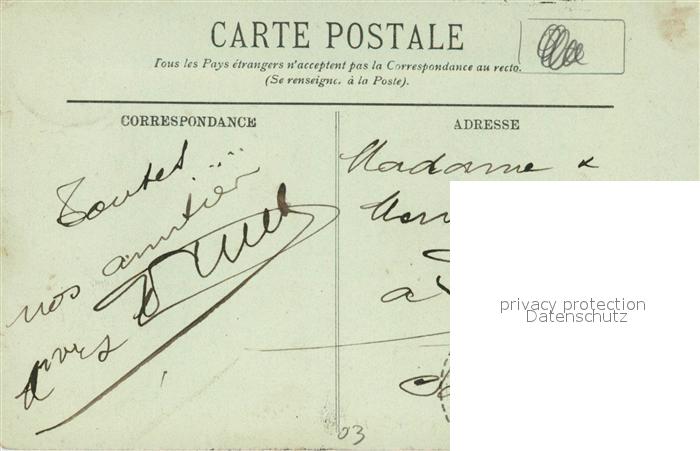 CARTE POSTALE
Tous les Pays étrangers n'acceptent pas la Correspondance au recto.
(Se renseignc. à la Poste).
CORRESPONDANCE
ADRESSE
Toutes
nos amitiés
Madame &
à
privacy protection
Datenschutz
03